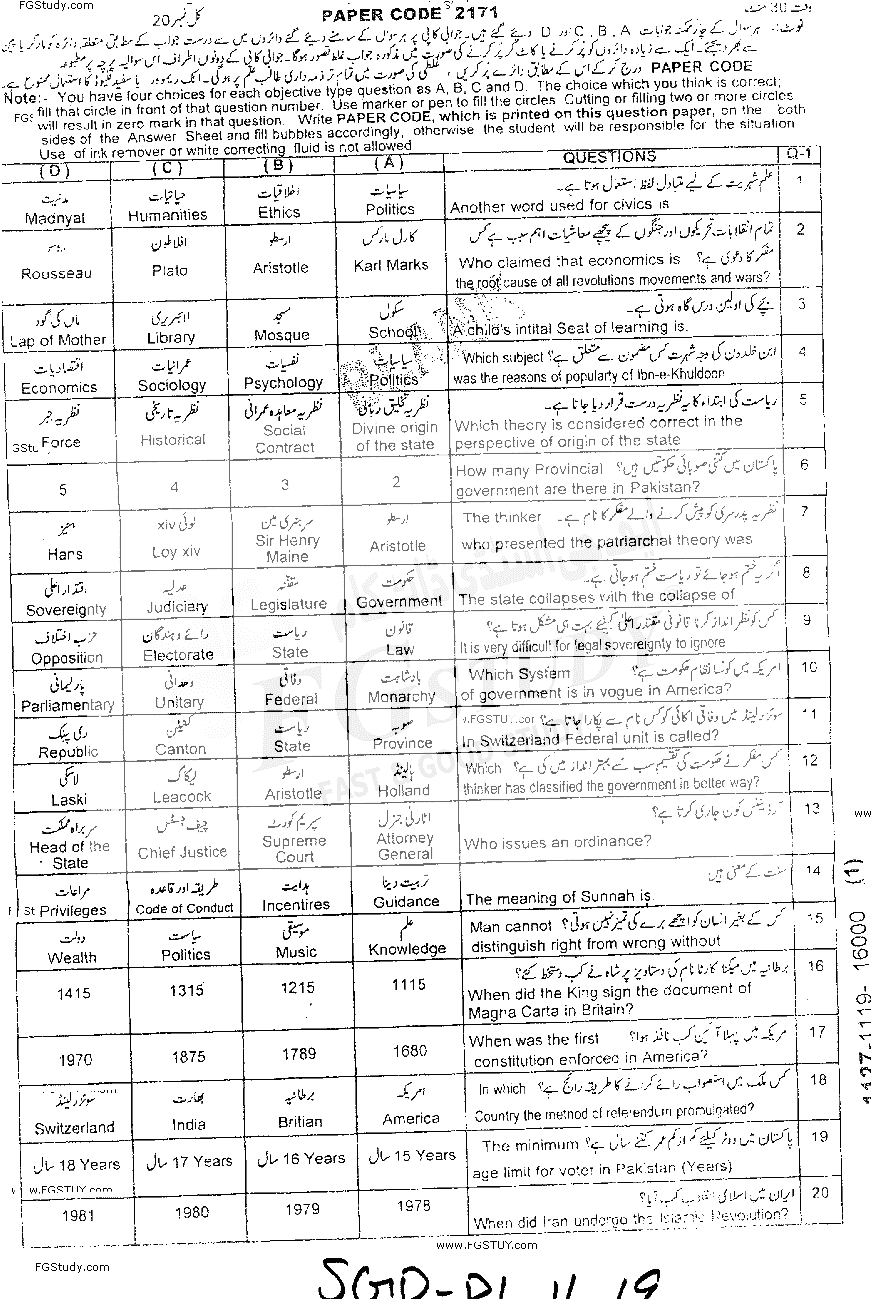 FGStudy.com
وقت 30 منٹ
PAPER CODE 2171
کل نمبر 20
نوٹ:- ہر سوال کے چار ممکنہ جوابات A ، B ، C اور D دیئے گئے ہیں۔ جوابی کاپی پر ہر سوال کے سامنے دیئے گئے دائروں میں سے درست جواب کے مطابق متعلقہ دائرہ کو مارکر یا پین
سے بھر دیجئے۔ ایک سے زیادہ دائروں کو پُر کرنے یا کاٹ کر پُر کرنے کی صورت میں مذکورہ جواب غلط تصور ہوگا۔ جوابی کاپی کے دونوں اطراف اس سوالیہ پرچہ پر مطبوعہ
PAPER CODE درج کر کے اس کے مطابق دائرے پُر کریں، غلطی کی صورت میں تمام تر ذمہ داری طالب علم پر ہوگی۔ انک ریموور یا سفید فلیوڈ کا استعمال ممنوع ہے۔
Note:- You have four choices for each objective type question as A, B, C and D. The choice which you think is correct;
fill that circle in front of that question number. Use marker or pen to fill the circles. Cutting or filling two or more circles
will result in zero mark in that question. Write PAPER CODE, which is printed on this question paper, on the both
sides of the Answer Sheet and fill bubbles accordingly, otherwise the student will be responsible for the situation
Use of ink remover or white correcting fluid is not allowed
(D) (C) (B) (A) QUESTIONS Q-1
مدنیت حیاتیات اخلاقیات سیاسیات علم شہریت کے لیے متبادل لفظ استعمال ہوتا ہے۔ 1
Madnyat Humanities Ethics Politics Another word used for civics is
روسو افلاطون ارسطو کارل مارکس تمام انقلابات تحریکوں اور جنگوں کے پیچھے معاشیات اہم سبب ہے کس 2
Rousseau Plato Aristotle Karl Marks Who claimed that economics is مفکر کا دعویٰ ہے؟
the root cause of all revolutions movements and wars?
ماں کی گود لائبریری مسجد سکول بچے کی اولین درس گاہ ہوتی ہے۔ 3
Lap of Mother Library Mosque School A child's intital Seat of learning is.
اقتصادیات عمرانیات نفسیات سیاسیات Which subject ابن خلدون کی وجہ شہرت کس مضمون سے متعلق ہے؟ 4
Economics Sociology Psychology Politics was the reasons of popularty of Ibn-e-Khuldoon
نظریہ جبر نظریہ تاریخی نظریہ معاہدہ عمرانی نظریہ تخلیق ربانی ریاست کی ابتداء کا یہ نظریہ درست قرار دیا جاتا ہے۔ 5
Force Historical Social Contract Divine origin of the state Which theory is considered correct in the
perspective of origin of the state
5 4 3 2 How many Provincial پاکستان میں کتنی صوبائی حکومتیں ہیں؟ 6
government are there in Pakistan?
لوئی xiv سر ہنری مین ارسطو The thinker نظریہ پدرسری کو پیش کرنے والے مفکر کا نام ہے۔ 7
Hans Loy xiv Sir Henry Maine Aristotle who presented the patriarchal theory was
اقتدار اعلیٰ عدلیہ مقننہ حکومت اگر یہ ختم ہو جائے تو ریاست ختم ہو جاتی ہے۔ 8
Sovereignty Judiciary Legislature Government The state collapses with the collapse of
حزب اختلاف رائے دہندگان ریاست قانون کس کو نظر انداز کرنا قانونی مقتدر اعلیٰ کیلئے بہت ہی مشکل ہوتا ہے؟ 9
Opposition Electorate State Law It is very difficult for legal sovereignty to ignore
پارلیمانی وحدانی وفاقی بادشاہت Which System امریکہ میں کونسا نظام حکومت ہے؟ 10
Parliamentary Unitary Federal Monarchy of government is in vogue in America?
ری پبلک کینٹن ریاست صوبہ سوئزر لینڈ میں وفاقی اکائی کو کس نام سے پکارا جاتا ہے؟ 11
Republic Canton State Province In Switzerland Federal unit is called?
لاسکی لیکاک ارسطو ہالینڈ Which کس مفکر نے حکومت کی تقسیم سب سے بہتر انداز میں کی ہے؟ 12
Laski Leacock Aristotle Holland thinker has classified the government in better way?
سربراہ مملکت چیف جسٹس سپریم کورٹ اٹارنی جنرل آرڈیننس کون جاری کرتا ہے؟ 13
Head of the State Chief Justice Supreme Court Attorney General Who issues an ordinance?
مراعات طریقہ اور قاعدہ ہدایت تربیت دینا سنت کے معنی ہیں 14
Privileges Code of Conduct Incentires Guidance The meaning of Sunnah is
دولت سیاست موسیقی علم Man cannot کس کے بغیر انسان کو اچھے برے کی تمیز نہیں ہوتی؟ 15
Wealth Politics Music Knowledge distinguish right from wrong without
برطانیہ میں میگنا کارٹا نام کی دستاویز پر شاہ نے کب دستخط کئے؟ 16
1415 1315 1215 1115 When did the King sign the document of
Magna Carta in Britain?
When was the first امریکہ میں پہلا آئین کب نافذ ہوا؟ 17
1970 1875 1789 1680 constitution enforced in America?
سوئزرلینڈ بھارت برطانیہ امریکہ In which کس ملک میں استصواب رائے کرانے کا طریقہ رائج ہے؟ 18
Switzerland India Britian America Country the method of referendum promulgated?
18 Years سال 17 Years سال 16 Years سال 15 Years سال The minimum پاکستان میں ووٹر کیلئے کم از کم عمر کتنے سال ہے؟ 19
age limit for voter in Pakistan (Years)
w.FGSTUY.com
ایران میں اسلامی انقلاب کب آیا؟ 20
1981 1980 1979 1978 When did Iran undergo the Islamic Revolution?
www.FGSTUY.com
FGStudy.com
(1)
1127-1119- 16000